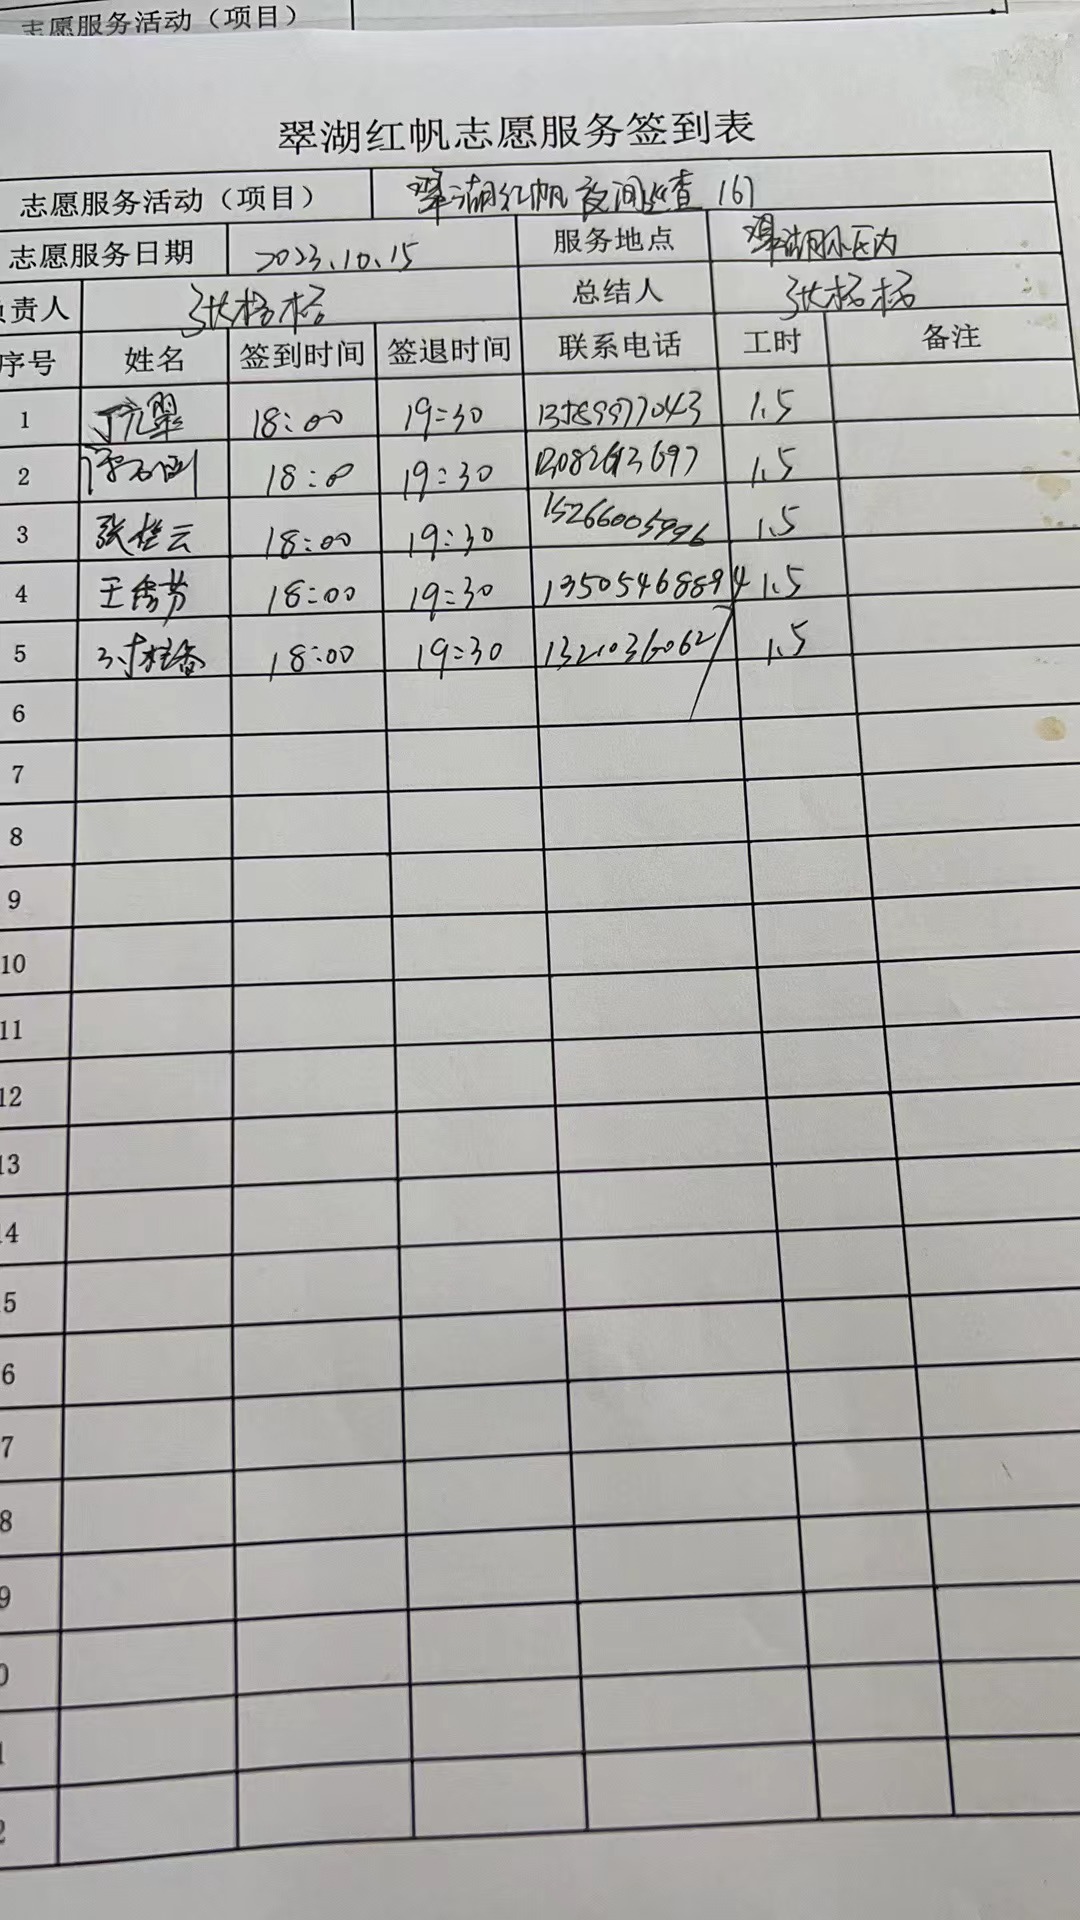 志愿服务活动（项目）
翠湖红帆志愿服务签到表
志愿服务活动（项目） 翠湖红帆夜间巡查 167
志愿服务日期 2023.10.15 服务地点 翠湖小区内
负责人 张杨杨 总结人 张杨杨
序号 姓名 签到时间 签退时间 联系电话 工时 备注
1 18:00 19:30 13589977043 1.5
2 18:0 19:30 1.5
3 张桂云 18:00 19:30 15266005996 1.5
4 王秀芳 18:00 19:30 13505468894 1.5
5 18:00 19:30 1.5
6
7
8
9
10
11
12
13
14
15
16
17
18
19
20
21
22